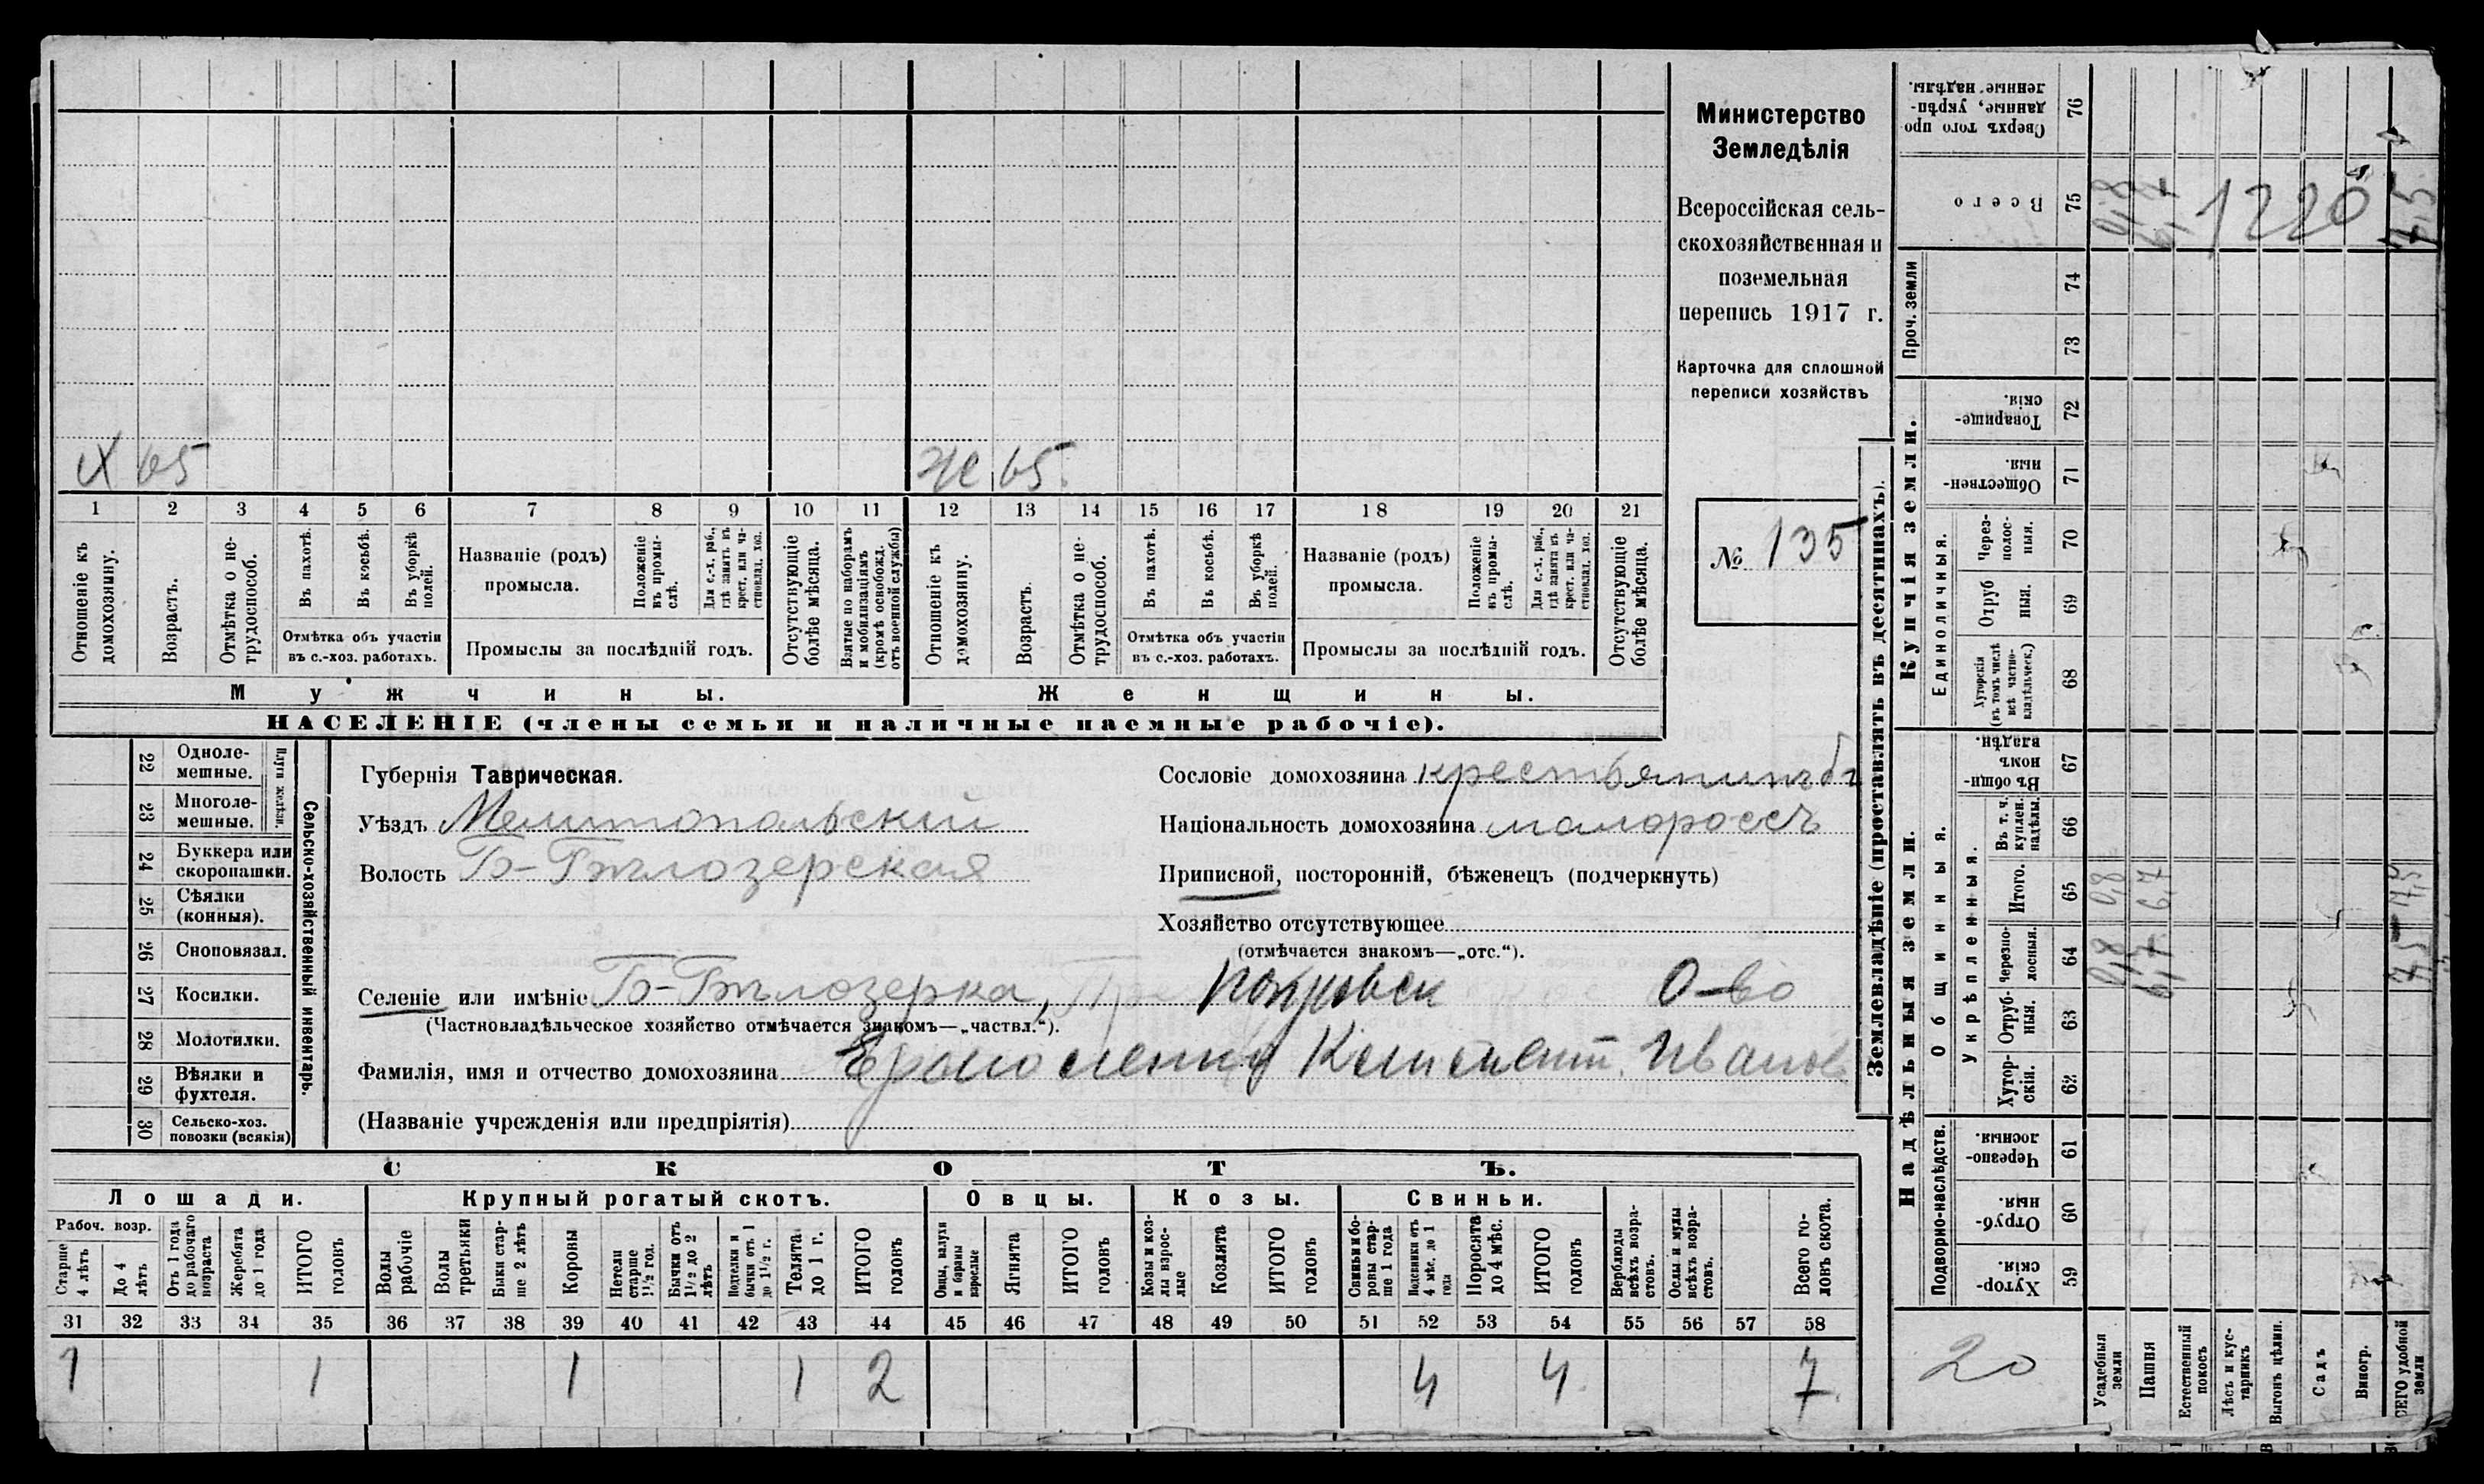 Х 65
Ж 65
1 2 3 4 5 6 7 8 9 10 11 12 13 14 15 16 17 18 19 20 21
Отношеніе къ домохозяину.
Возрастъ.
Отмѣтка о нетрудоспособ.
Въ пахотѣ.
Въ косьбѣ.
Въ уборкѣ полей.
Отмѣтка объ участіи
въ с.-хоз. работахъ.
Названіе (родъ)
промысла.
Положеніе въ промыслѣ.
Для с.-х. раб., гдѣ занятъ въ крест. или частновлад. хоз.
Промыслы за послѣдній годъ.
Отсутствующіе болѣе мѣсяца.
Взятые по наборамъ и мобилизаціямъ (кромѣ освобожд. отъ военной службы)
Отношеніе къ домохозяину.
Возрастъ.
Отмѣтка о нетрудоспособ.
Въ пахотѣ.
Въ косьбѣ.
Въ уборкѣ полей.
Отмѣтка объ участіи
въ с.-хоз. работахъ.
Названіе (родъ)
промысла.
Положеніе въ промыслѣ.
Для с.-х. раб., гдѣ занята въ крест. или частновлад. хоз.
Промыслы за послѣдній годъ.
Отсутствующіе болѣе мѣсяца.
Мужчины. Женщины.
НАСЕЛЕНІЕ (члены семьи и наличные наемные рабочіе).
Министерство
Земледѣлія
Всероссійская сель-
скохозяйственная и
поземельная
перепись 1917 г.
Карточка для сплошной
переписи хозяйствъ
№ 135
22 Одноле-
мешные.
23 Многоле-
мешные.
Плуги желѣзн.
24 Буккера или
скоропашки.
25 Сѣялки
(конныя).
26 Сноповязал.
27 Косилки.
28 Молотилки.
29 Вѣялки и
фухтеля.
30 Сельско-хоз.
повозки (всякія)
Сельско-хозяйственный инвентарь.
Губернія Таврическая.
Уѣздъ Мелитопольскій
Волость Б-Бѣлозерская
Сословіе домохозяина крестьянинъ
Національность домохозяина малороссъ
Приписной, посторонній, бѣженецъ (подчеркнуть)
Хозяйство отсутствующее
(отмѣчается знакомъ—„отс.“).
Селеніе или имѣніе Б-Бѣлозерка, Покровск О-во
(Частновладѣльческое хозяйство отмѣчается знакомъ—„частвл.“).
Фамилія, имя и отчество домохозяина Иванов
(Названіе учрежденія или предпріятія)
СКОТЪ.
Лошади. Крупный рогатый скотъ. Овцы. Козы. Свиньи.
Рабоч. возр.
Старше 4 лѣтъ
До 4 лѣтъ
Отъ 1 года до рабочаго возраста
Жеребята до 1 года
ИТОГО головъ
Волы рабочіе
Волы третьяки
Быки старше 2 лѣтъ
Коровы
Нетели старше 1½ год.
Бычки отъ 1½ до 2 лѣтъ
Подтелки и бычки отъ 1 до 1½ г.
Телята до 1 г.
ИТОГО головъ
Овцы, валухи и бараны взрослые
Ягнята
ИТОГО головъ
Козы и козлы взрослые
Козлята
ИТОГО головъ
Свиньи и боровы старше 1 года
Подсвинки отъ 4 мѣс. до 1 года
Поросята до 4 мѣс.
ИТОГО головъ
Верблюды всѣхъ возрастовъ.
Ослы и мулы всѣхъ возрастовъ.
Всего головъ скота.
31 32 33 34 35 36 37 38 39 40 41 42 43 44 45 46 47 48 49 50 51 52 53 54 55 56 57 58
1 1 1 1 2 4 4 7
Землевладѣніе (проставлять въ десятинахъ).
Купчія земли.
Надѣльныя земли.
Сверхъ того проданные, укрѣпленные надѣлы. 76
Всего 75 0,8 6,7 1220 7,5
Проч. земли 74 73
Товарищескія. 72
Общественныя. 71
Единоличныя.
Черезполосныя. 70
Отрубныя. 69
Хуторскія (въ томъ числѣ всѣ частновладѣльческ.) 68
Общинныя.
Въ общинномъ владѣн. 67
Укрѣпленныя.
Въ т. ч. куплен. надѣлы. 66
Итого. 65 0,8 6,7 7,5
Черезполосныя. 64 0,8 6,7 7,5
Отрубныя. 63
Хуторскія. 62
Подворно-наслѣдств.
Черезполосныя. 61
Отрубныя. 60
Хуторскія. 59
20
Усадебныя земли
Пашня
Естественный покосъ
Лѣсъ и кустарникъ
Выгонъ цѣлин.
Садъ
Виногр.
ВСЕГО удобной земли